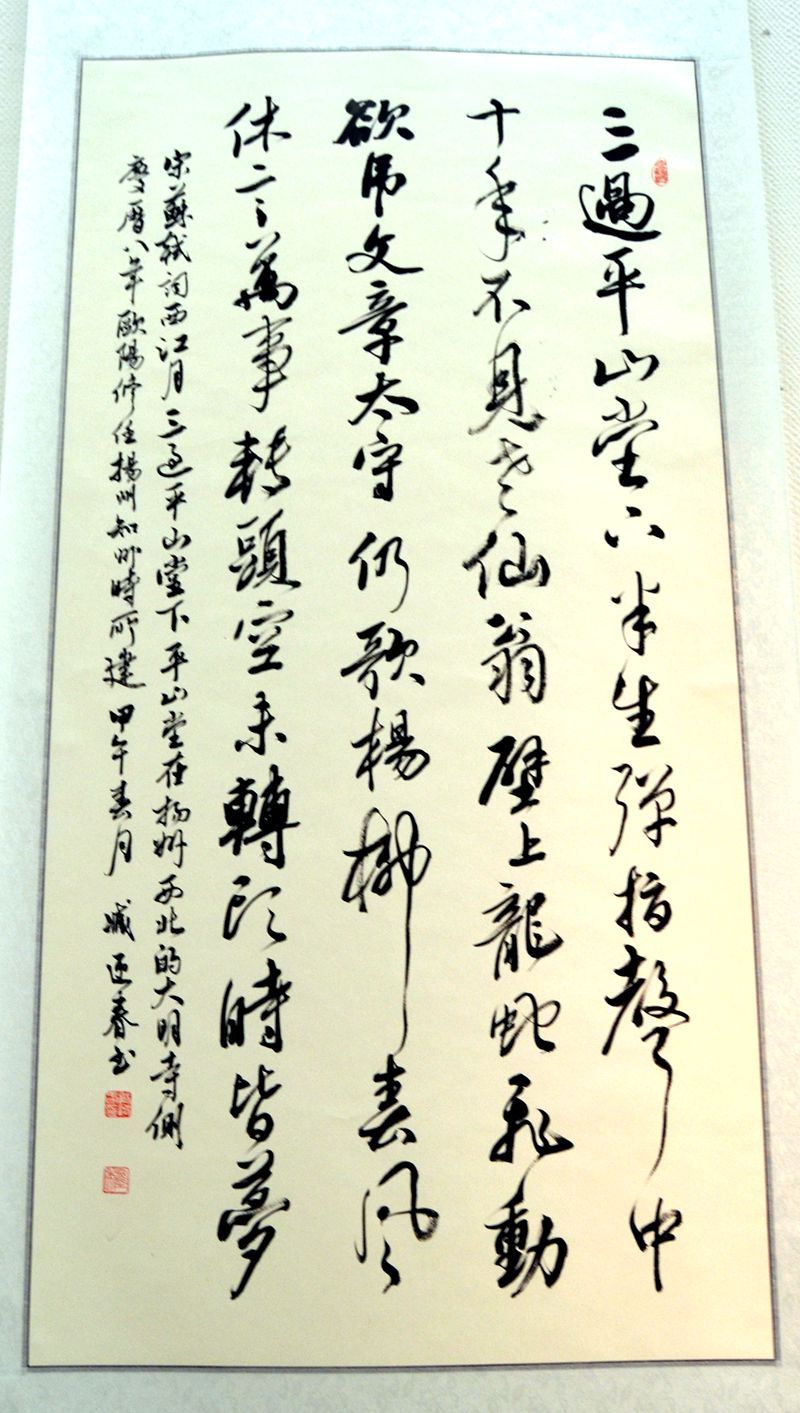 三過平山堂下半生彈指聲中
十年不見老仙翁壁上龍蛇飛動
欲吊文章太守仍歌楊柳春風
休言萬事轉頭空未轉頭時皆夢
宋蘇軾詞西江月三過平山堂下平山堂在揚州西北的大明寺側
慶曆八年歐陽修任揚州知州時所建甲午春月臧迎春书